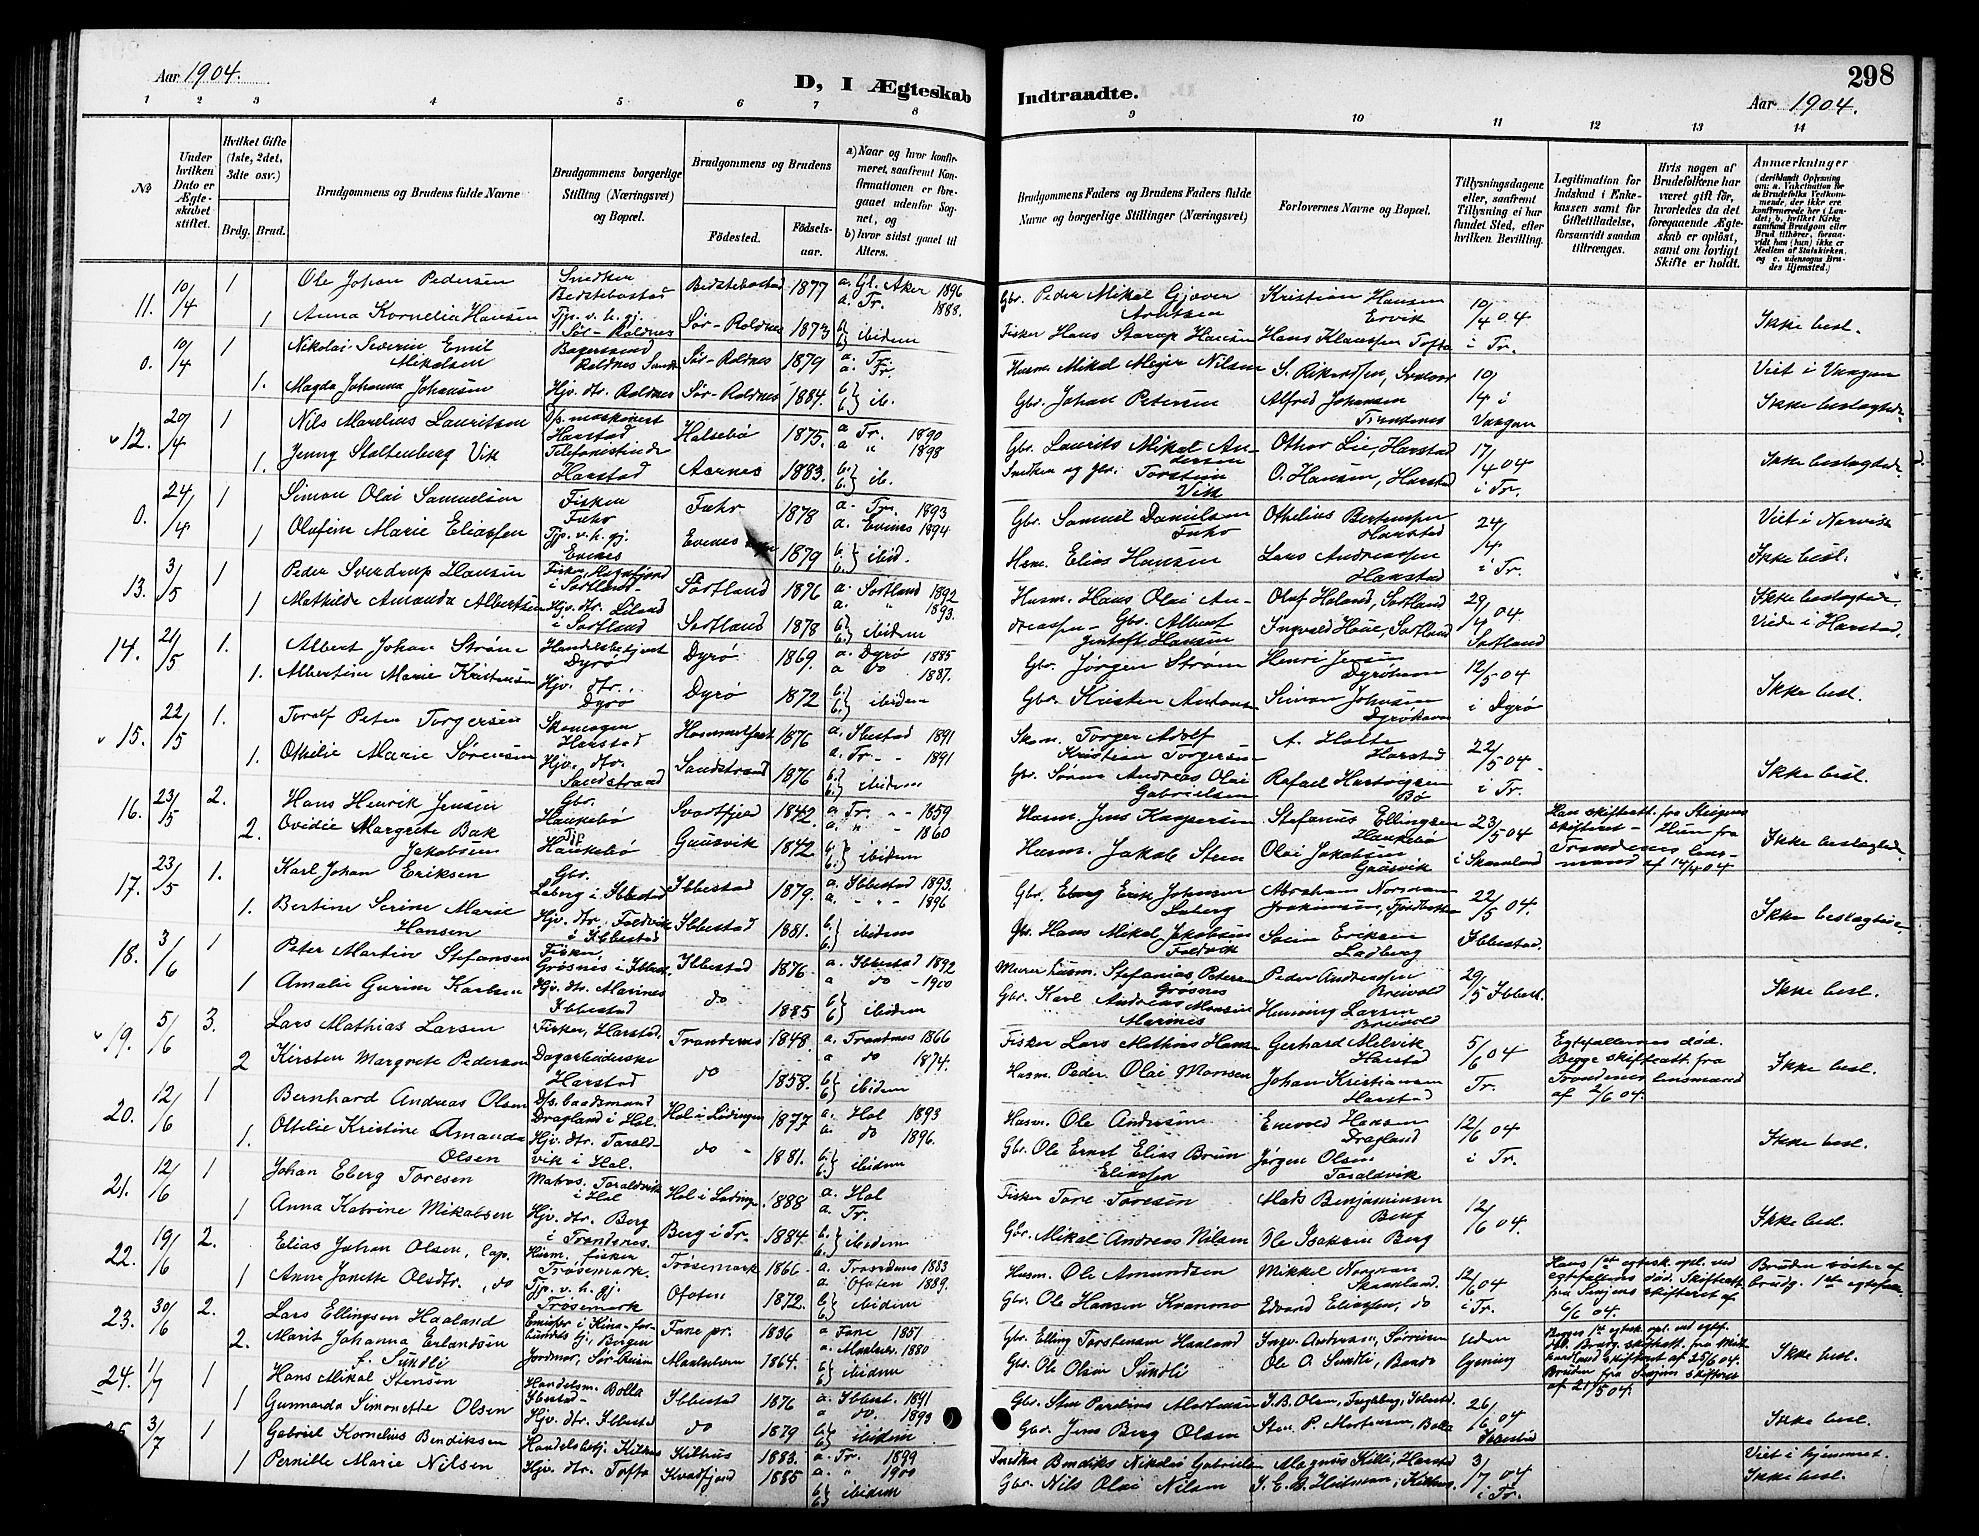 Aar 1904.
D, I Ægteskab
Indtraadte.
298
Aar 1904.
1 2 3 4 5 6 7 8
9 10 11 12 13 14
No
Under hvilken Dato er Ægteskabet stiftet.
Hvilket Gifte (1ste, 2det, 3dte osv.)
Brdg. Brud.
Brudgommens og Brudens fulde Navne
Brudgommens borgerlige Stilling (Næringsvei) og Bopæl.
Brudgommens og Brudens
Fødested.
Fødsels-aar.
a) Naar og hvor konfirmeret, saafremt Konfirmationen er foregaaet udenfor Sognet, og
b) hvor sidst gaaet til Alters.
Brudgommens Faders og Brudens Faders fulde Navne og borgerlige Stillinger (Næringsvei)
Forlovernes Navne og Bopæl.
Tillysningsdagene eller, saafremt Tillysning ei har fundet Sted, efter hvilken Bevilling.
Legitimation for Indskud i Enkekassen samt for Giftetilladelse, forsaavidt saadan tiltrænges.
Hvis nogen af Brudefolkene har været gift før, hvorledes da det foregaaende Ægteskab er opløst, samt om lovligt Skifte er holdt.
Anmærkninger (deriblandt Oplysning om: a. Vakcination for de Brudefolks Vedkommende, der ikke ere konfirmerede her i Landet; b. hvilket Kirkesamfund Brudgom eller Brud tilhører, forsaavidt han (hun) ikke er Medlem af Statskirken, og c. udensogns Brudes Hjemsted.)
11. 10/4 1 Ole Johan Pedersen Snedker Bedstebostad Bedstebostad 1877 a. Gl. Aker 1896 Gbr. Peder Mikal Gjøver Arntsen Kristian Hansen Ervik 10/4 04 i Tr. Ikke besl.
1 Anna Kornelia Hansen Tjp. v. h. gj. Sør-Roldnes Sør-Roldnes 1873 a. Tr. 1888. b. b. ibidem Fisker Hans Starup Hansen Hans Klaussen Tofta
0. 10/4 1 Nikolai Severin Emil Mikalsen Roldnes Sør-Roldnes 1879 a. Tr. Husm. Mikal Meyer Nilsen 10/4 i Vaagan Viet i Vaagan
1. Magda Johanna Johansen Hjv. dtr. Roldnes Sør-Roldnes 1884. b. b. ib. Gbr. Johan Petersen Alfred Johansen Trondenes Ikke beslægtede
12. 20/4 1 Nils Marelius Lauritsen Harstad Halsebø 1875. a Tr. 1890 Gbr. Laurits Mikal Andersen Othar Lie, Harstad 17/4 04 i Tr. Ikke beslægtede
1. Jenny Stoltenberg Vik Telefonistinde Harstad Aarnes 1883. a " 1898 b. b. ib. Snedker og gbr. Torstein Vik O. Hansen, Harstad
0. 24/4 1 Simon Olai Samuelsen Fisker 1878 a. Tr. 1893 Gbr. Samuel Danielsen Othelius Bertensen Harstad 24/4 i Tr. Viet i Narvik
1 Olafine Marie Eliassen Tjp. v. h. gj. Evenes Evenes 1879 a. Evenes 1894 b. b. ibid. Hsm. Elias Hansen Lars Andreassen Harstad Ikke besl.
13. 3/5 1 Peder Sverdrup Hansen Fisker i Sortland Sortland 1876 a. Sortland 1892 Husm. Hans Olai Andreassen Olaf Holand, Sortland 29/4 04 Sortland Ikke beslægtede.
1 Mathilde Amanda Albertsen Hjv. dtr. i Sortland Sortland 1878 a. " 1893. b. b. ibidem Gbr. Albert Jentoft Hansen Ingvald Houe, Sortland Viede i Harstad.
14. 21/5 1. Albert Johan Strøm Handelsbetjent Dyrø Dyrø 1869. a. Dyrø 1885 Gbr. Jørgen Strøm Henri Jensen Dyrøhavn 12/5 04 i Dyrø Ikke besl.
1. Albertine Marie Kristensen Hjv. dtr. Dyrø Dyrø 1872 a do 1887. b. b. ibidem Gbr. Kristen Antons Simon Johnsen Dyrøhavn
15. 22/5 1. Toralf Peter Torgersen Skomager Harstad Hammerfest 1876 a. Ibestad 1891 Skom. Torger Adolf Kristian Torgersen A. Holte Harstad 22/5 04 i Tr. Ikke besl.
1. Othelie Marie Sørensen Hjv. dtr. Sandstrand Sandstrand 1876 a. Tr. 1891 b. b. ibidem Gbr. Søren Andreas Olai Gabrielsen Rafael Hartvigsen Bø
16. 23/5 2. Hans Henrik Jensen Gbr. Haukebø Svartfjeld 1842. a Tr. 1859 Husm. Jens Kaspersen Stefanus Ellingsen Haukebø 23/5 04 i Skaanland Han skifteatt. fra Steigens skifteret - Hun fra Trondenes lensmand af 14/4 04 Ikke beslægtede
2. Ovidie Margrete Bak Jakobsen Tjp. Haukebø Gausvik 1842. a. " 1860 b. b. ibidem Husm. Jakob Sten Olai Jakobsen Grøsvik
17. 23/5 1. Karl Johan Eriksen Gbr. Laberg i Ibbestad Ibbestad 1879. a. Ibbestad 1893. Gbr. Erik Johnsen Laberg Abraham Norman Joakimsen, Fjordbotten 22/5 04. Ibbestad. Ikke beslægtede
1. Bertine Serine Marie Hansen Hjv. dtr. Foldvik i Ibbestad Ibbestad 1881. a. " 1896 b. b. ibidem Gbr. Hans Mikal Jakobsen Foldvik Svein Eriksen Ladberg
18. 3/6 1 Peter Martin Stefansen Fisker, Grøsnes i Ibbest. Ibbestad 1876. a. Ibbestad 1892 Murer husm. Stefanias Petersen Grøsnes Peder Andreassen Breivold 29/5 Ibbest. Ikke besl.
1 Amalie Gurine Karlsen Hjv. dtr. Marines Ibbestad do 1885 a do 1900 b b ibidem Gbr. Karl Andreas Monsen Marines Henning Larsen Breivold
19. 5/6 3. Lars Mathias Larsen Fisker, Harstad. Trondenes 1848. a. Trondnes 1866 Fisker Lars Mathias Hansen Gerhard Melvik Harstad 5/6 04 Tr. Egtefællernes død. Begge skifteatt. fra Trondenes lensmand af 2/6 04. Ikke besl.
2 Kirsten Margrete Pedersen Dagarbeiderske Harstad do 1858. a do 1874. b b ibidem Husm. Peder Olai Monsen Johan Kristiansen Harstad
20. 12/6 1 Bernhard Andreas Olsen D/s. baadsmand Dragland i Hol. Hol i Lødingen 1877 a. Hol 1893 Husm. Ole Andersen Enevold Hansen Dragland 12/6 04 i Tr. Ikke besl.
1. Ottelie Kristine Amanda Olsen Hjv. dtr. Taraldvik i Hol. do 1881. a. do 1896. b. b. ibidem Gbr. Ole Ernst Elias Brun Eliassen Jørgen Olsen Taraldvik
21. 12/6 1 Johan Eberg Toresen Matros. Taraldvik i Hol Hol i Lødingen 1888 a. Hol Fisker Tore Toresen Mads Benjaminsen Berg 12/6 04. Ikke besl.
1 Anna Katrine Mikalsen Hjv. dtr. Berg i Trondenes. Berg i Tr. 1884. a. Tr. b. b. ibidem Gbr. Mikal Andreas Nilsen Ole Isaksen Berg
22. 19/6 2. Elias Johan Olsen, lap. Husm. fisker Trøsemark. Trøsemark 1866. a. Trondenes 1883 Husm. Ole Amundsen Mikkel Norman Skaanland. 12/6 04 i Tr. Hans 1st egtesk. opl. ved egtefællens død. Skifteatt. fra Senjens skifteret af 6/6 04. Bruden søster af brudg. 1ste egtefælle
1 Anne Janette Olsdtr., do Tjp. v. h. gj. Trøsemark Ofoten 1872. a Ofoten 1889. b. b. ibidem Gbr. Ole Hansen Kvanmo Edvard Eliassen, do
23. 30/6 2. Lars Ellingsen Haaland Emissær i Kina-forbundet Fane pr. 1836 a Fane 1851 Gbr. Elling Torstensen Haaland Ingv. Andersen, Sørreisen Uden lysning Ikke besl.
2. Marit Johanna Erlandsen f. Sundli Jordmor, Sør-Reisen 1864. a. 1880 b. b. ibidem Gbr. Ole Olsen Sundli Ole O. Sundli, Bardo Bruden fra Senjens skifteret af 21/5 04.
24. 1/7 1 Hans Mikal Stensen Handelsm. Bolla Ibestad Ibbestad 1876 a. Ibbest. 1891 Gbr. Sten Paulius Mortensen I. B. Olsen, 26/6 04 Ibbestad Ikke besl.
1 Gunnarda Simonette Olsen Hjv. dtr. Ibbestad do 1879 a do. 1893 b. b. ibidem Gbr. Jens Berg Olsen Sten P. Mortensen, Bolla
3/7 1 Gabriel Kornelius Bendiksen Handelsbetj. Kilhus Kilhus 1883. a. Tr. 1899 Snedker Bendiks Nikolai Gabrielsen Magnus Killi, Harstad 3/7 04 i Tr. Viet i hjemmet.
1 Pernille Marie Nilsen Hjv. dtr. Tofta Kvædfjord 1885 a. " 1900 b. b. ibidem Gbr. Nils Olai Nilsen Kilhus. Ikke besl.